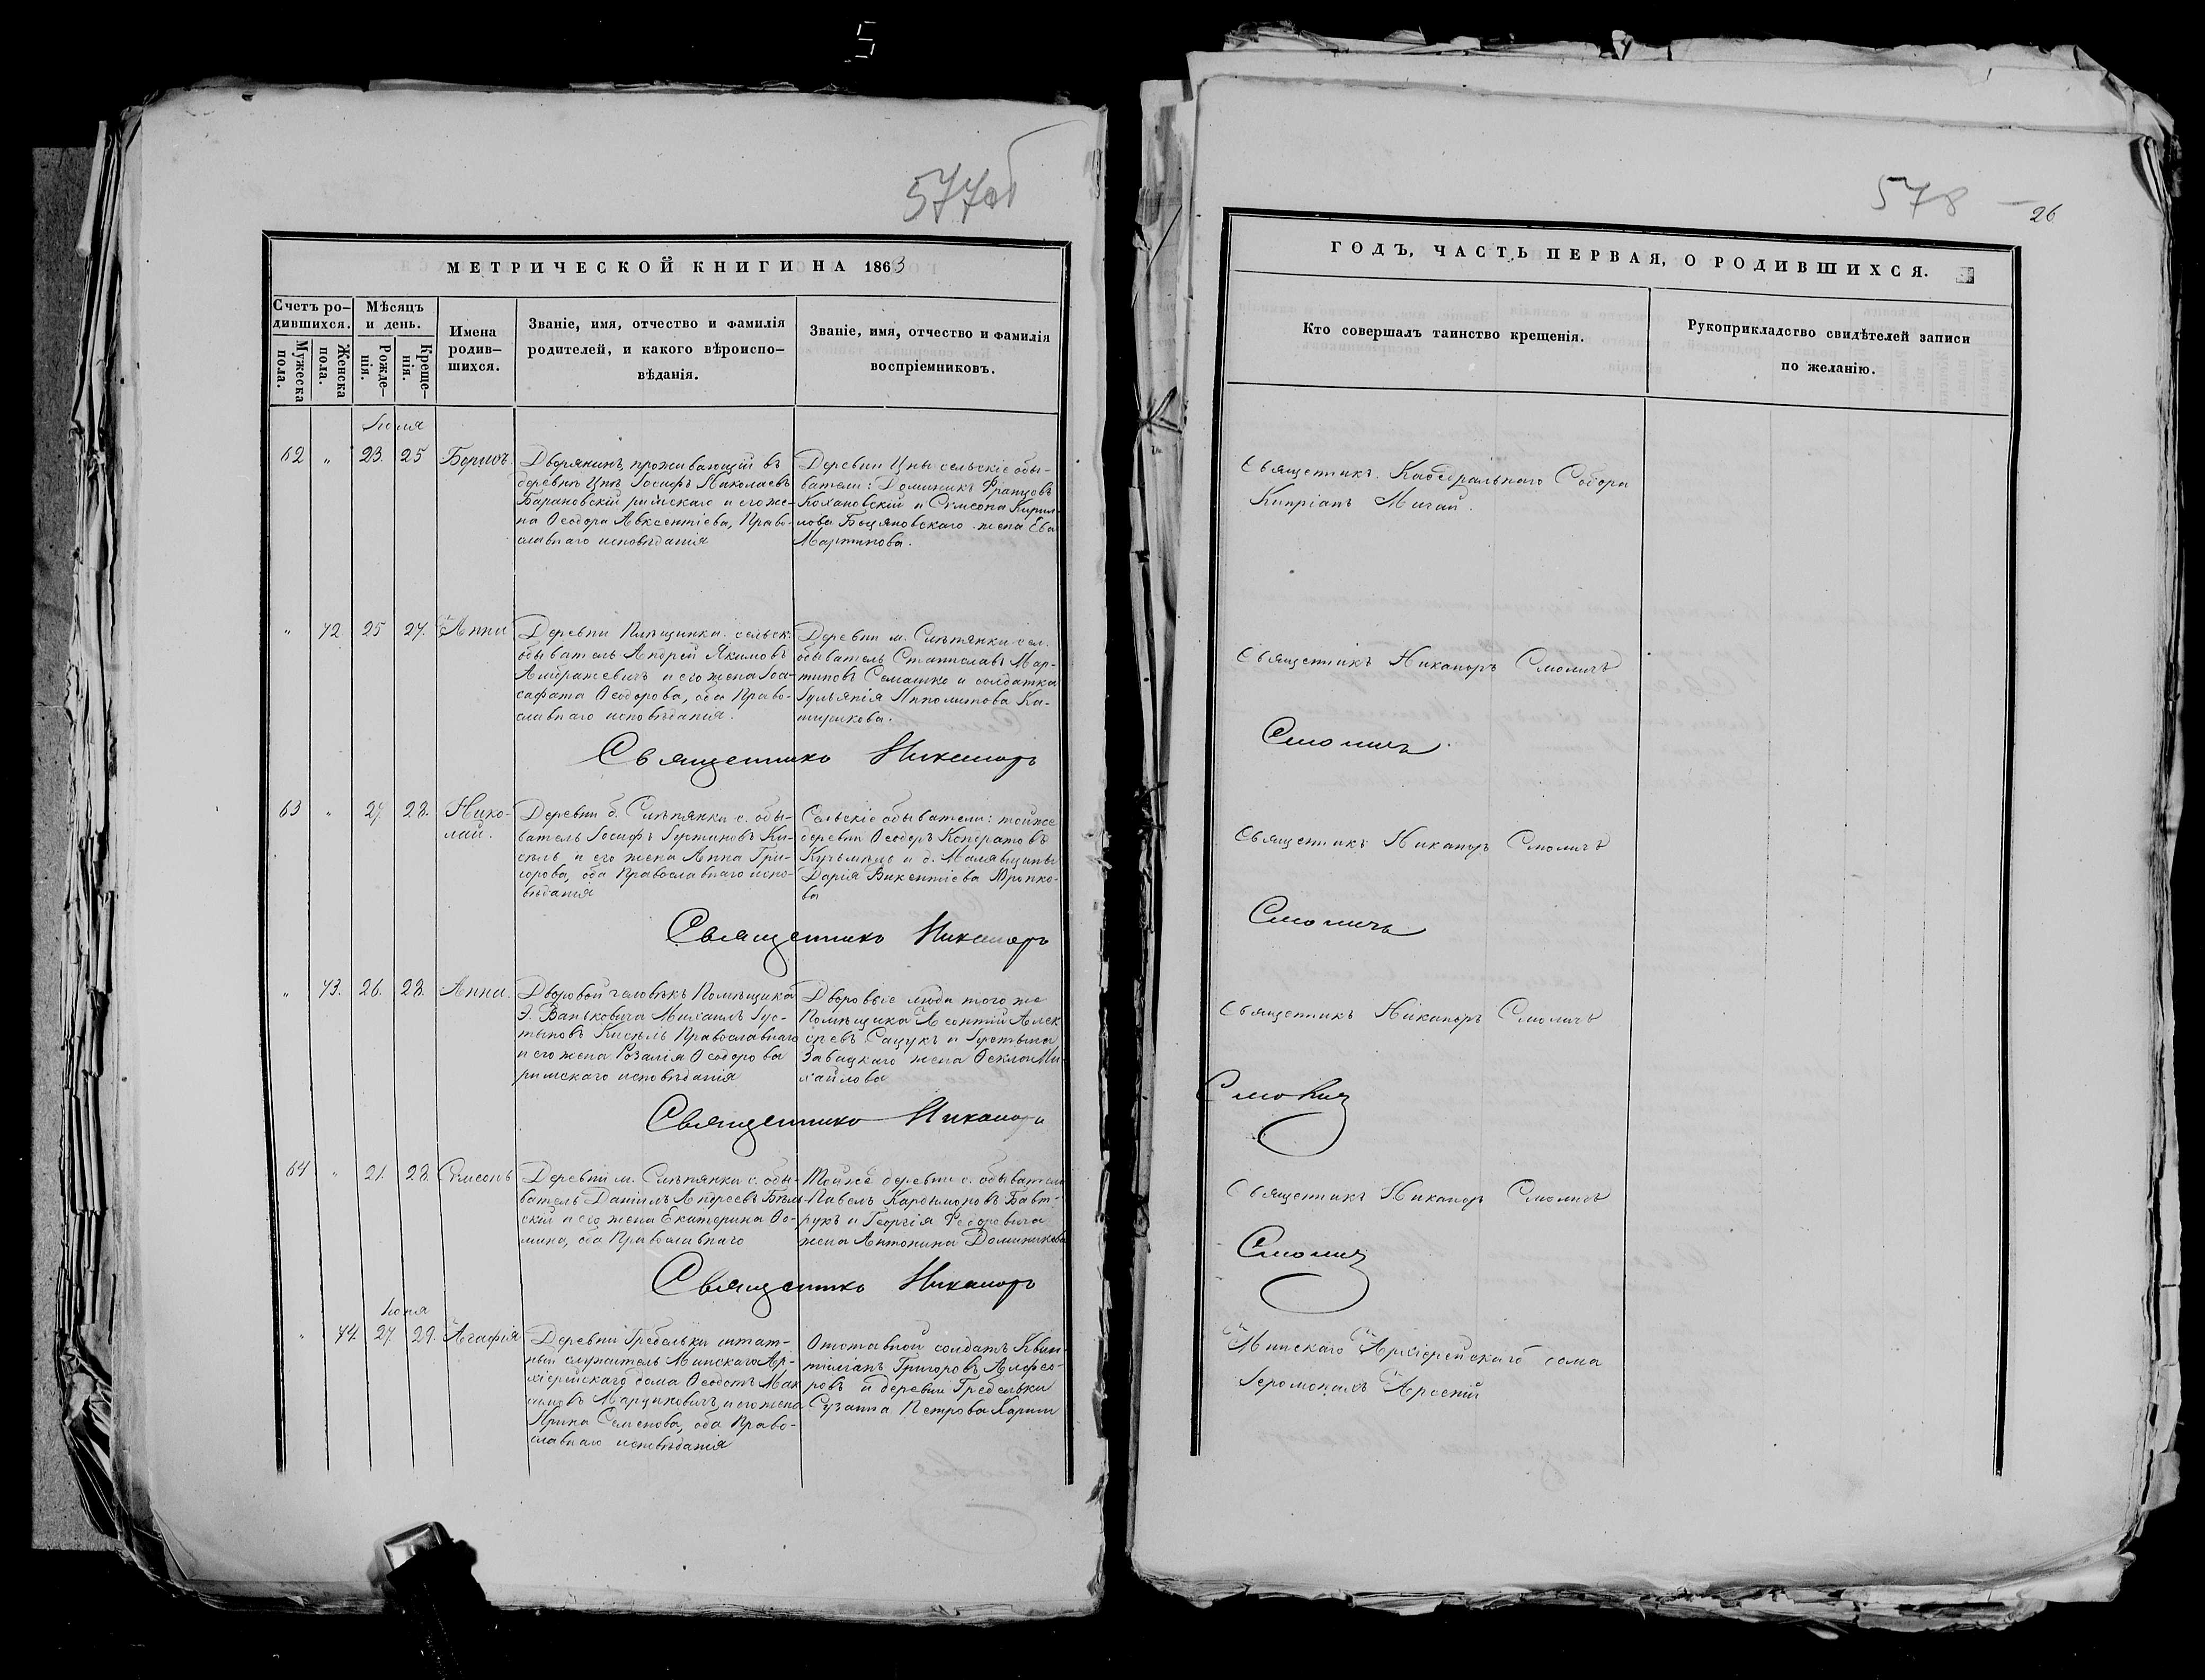 577об
МЕТРИЧЕСКОЙ КНИГИ НА 1863
Счетъ ро-
дившихся.
Мѣсяцъ
и день.
Мужеска
пола.
Женска
пола.
Рожде-
нія.
Креще-
нія.
Имена
родив-
шихся.
Званіе, имя, отчество и фамилія
родителей, и какого вѣроиспо-
вѣданія.
Званіе, имя, отчество и фамилія
воспріемниковъ.
62 " 23. 25 Борисъ.
Дворянинъ, проживающій въ
деревнѣ Цнѣ Іосифъ Николаевъ
Барановскій римскаго и его же-
на Ѳеодора Авксентіева, Право-
славнаго исповѣданія
Деревни Цны сельскіе обы-
ватели: Доминикъ Францовъ
Кохановскій и Сѵмеона Кирил-
лова Боцяновскаго жена Ева
Мартинова.
" 72 25 27. Анна
Деревни сельск.
обыватель Андрей Якимовъ
и его жена Іоа-
сафата Ѳеодорова, оба Право-
славнаго исповѣданія.
Деревни м. Слѣпянки сел.
обыватель Станиславъ Мар-
тиновъ Семашко и солдатка
Іуліянія Ипполитова Ка-
ширикова.
Священникъ Никаноръ
63 " 27 28. Нико-
лай.
Деревни б. Слѣпянки с. обы-
ватель Іосифъ Іустиновъ Ки-
сель, и его жена Анна Гри-
горова, оба Православнаго испо-
вѣданія
Сельскіе обыватели: тойже
деревни Ѳеодоръ Кондратовъ
и д. Малявщины
Дарія Викентіева
ва
Священникъ Никаноръ
" 73. 26. 28. Анна.
Дворовой человѣкъ Помѣщика
Э. Ваньковича Михаилъ Іус-
тиновъ Кисѣль Православнаго
и его жена Розалія Ѳеодорова
римскаго исповѣданія
Дворовые люди того же
Помѣщика Леонтій Алек
сѣевъ Сацукъ и Іустина
Завацкаго жена Ѳекла Ми-
хайлова
Священникъ Никаноръ
64 " 21. 28. Сѵмеонъ
Деревни м. Слѣпянки с. обы-
ватель Даніилъ Андреевъ Бѣль-
скій и его жена Екатерина Ѳо-
мина, оба Православнаго
Тойже деревни с. обыватели
Павелъ Бавт-
рукъ и Георгія Ѳедоровича
жена Антонина Доминикова
Священникъ Никаноръ
Іюня
" 74 27. 29. Агафія
Деревни Гребельки штат-
ный служитель Минскаго Ар-
хіерейскаго дома Ѳеодотъ Мак
симовъ Марцинкевичъ и его жена
Ирина Семенова, оба Право-
славнаго исповѣданія
Отставной солдатъ Квин-
тиліанъ Григоровъ Алфео-
ровъ и деревни Гребельки
Сузанна Петрова
578 - 26
ГОДЪ, ЧАСТЬ ПЕРВАЯ, О РОДИВШИХСЯ.
Кто совершалъ таинство крещенія.
Рукоприкладство свидѣтелей записи
по желанію.
Священникъ Каѳедральнаго Собора
Кипріанъ Мигай.
Священникъ Никаноръ Смоличъ
Смоличъ
Священникъ Никаноръ Смоличъ
Смоличъ
Священникъ Никаноръ Смоличъ
Смоличъ
Священникъ Никаноръ Смоличъ
Смоличъ
Минскаго Архіерейскаго дома
Іеромонахъ